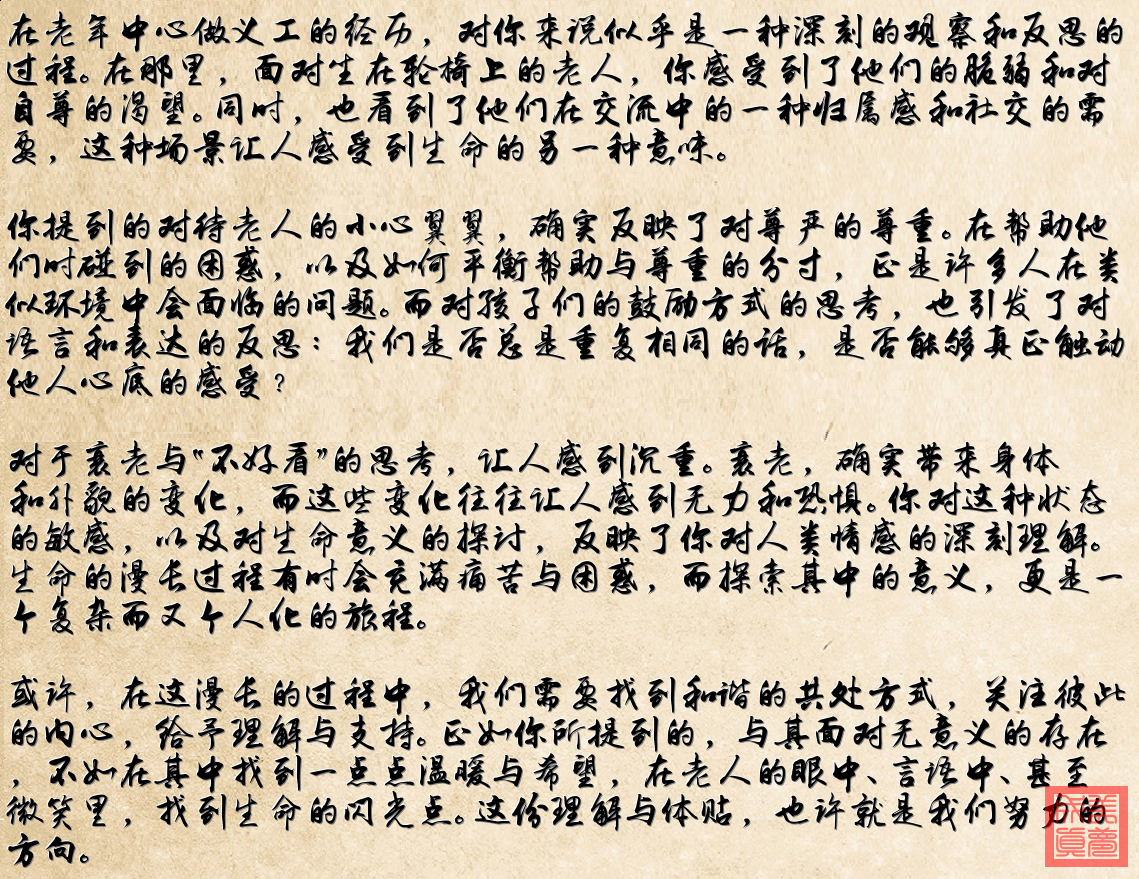 在老年中心做义工的经历，对你来说似乎是一种深刻的观察和反思的
过程。在那里，面对坐在轮椅上的老人，你感受到了他们的脆弱和对
自尊的渴望。同时，也看到了他们在交流中的一种归属感和社交的需
要，这种场景让人感受到生命的另一种意味。
你提到的对待老人的小心翼翼，确实反映了对尊严的尊重。在帮助他
们时碰到的困惑，以及如何平衡帮助与尊重的分寸，正是许多人在类
似环境中会面临的问题。而对孩子们的鼓励方式的思考，也引发了对
语言和表达的反思：我们是否总是重复相同的话，是否能够真正触动
他人心底的感受？
对于衰老与“不好看”的思考，让人感到沉重。衰老，确实带来身体
和外貌的变化，而这些变化往往让人感到无力和恐惧。你对这种状态
的敏感，以及对生命意义的探讨，反映了你对人类情感的深刻理解。
生命的漫长过程有时会充满痛苦与困惑，而探索其中的意义，更是一
个复杂而又个人化的旅程。
或许，在这漫长的过程中，我们需要找到和谐的共处方式，关注彼此
的内心，给予理解与支持。正如你所提到的，与其面对无意义的存在
，不如在其中找到一点点温暖与希望，在老人的眼中、言语中、甚至
微笑里，找到生命的闪光点。这份理解与体贴，也许就是我们努力的
方向。